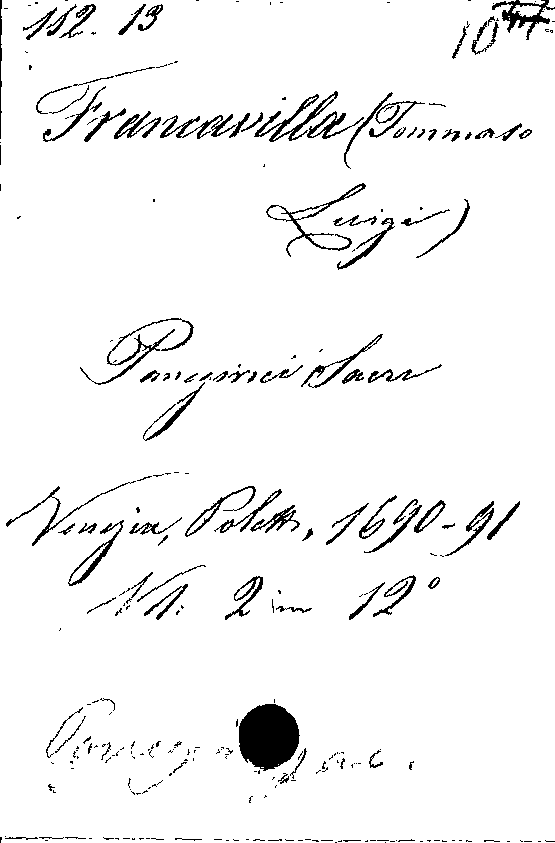 152. 13
10
Francavilla (Tommaso
Luigi)
Panegirici Sacri
Venezia, Poletti, 1690-91
Vl: 2 in 12°